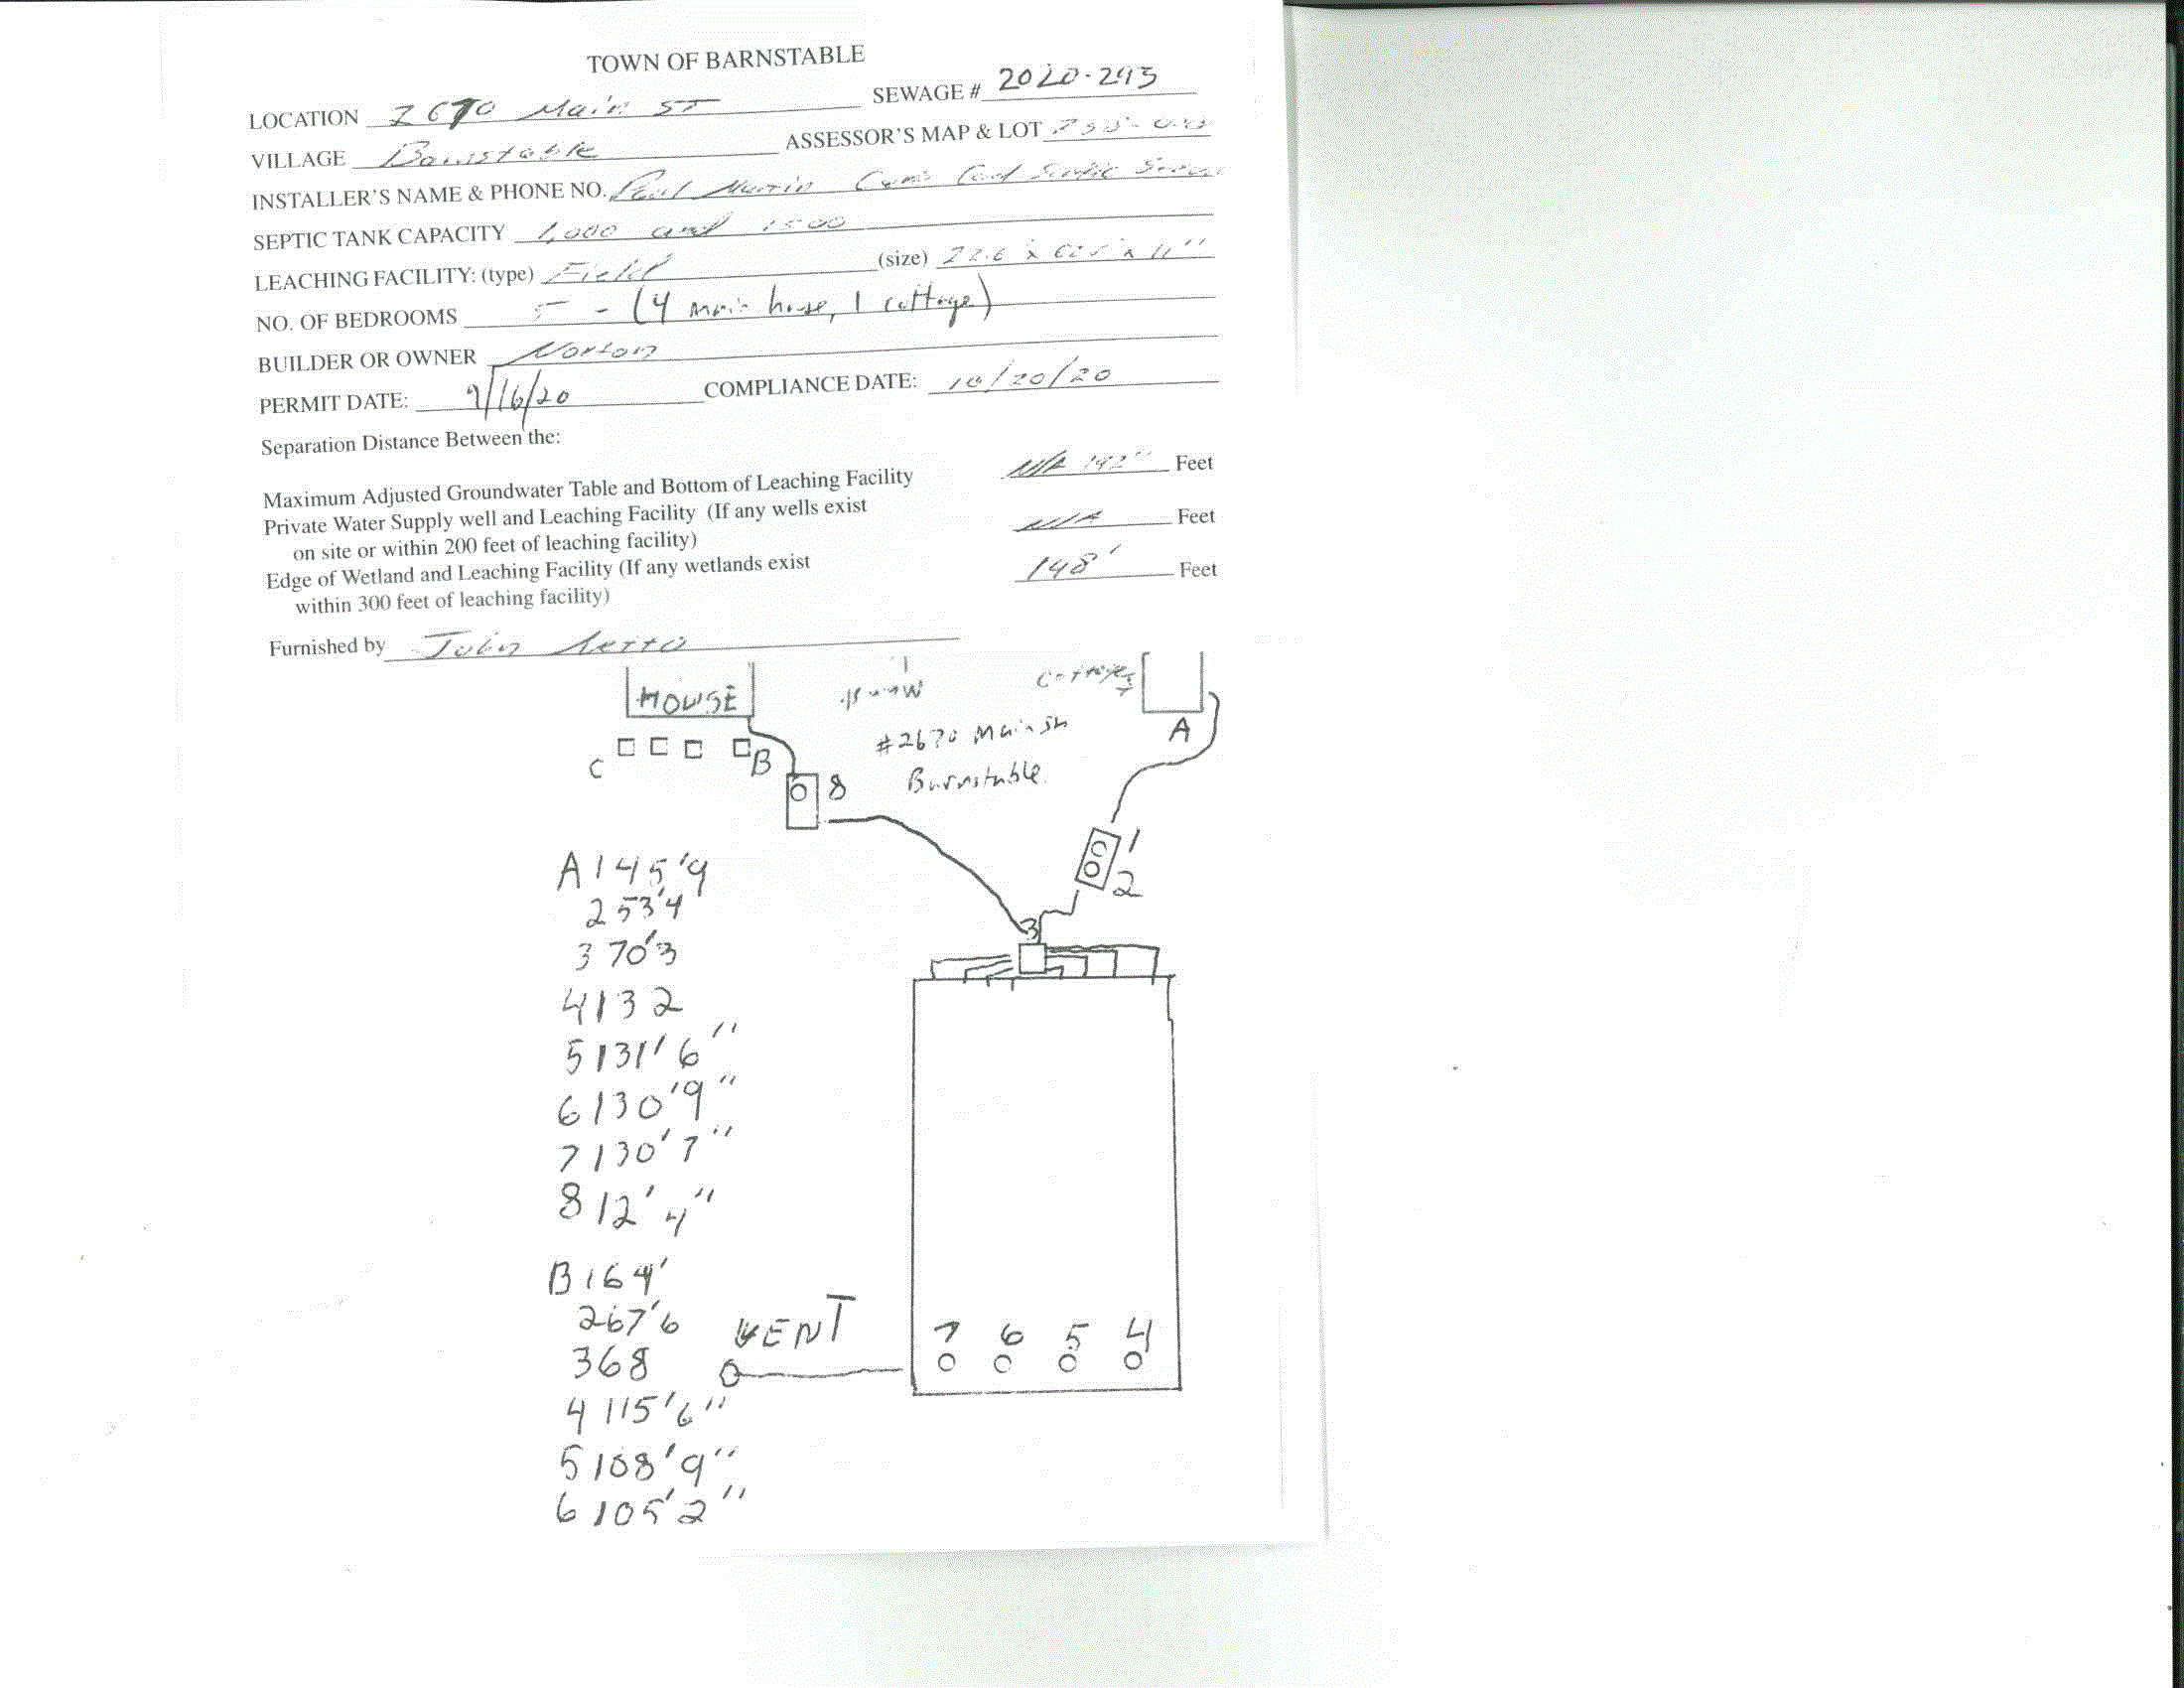 TOWN OF BARNSTABLE
LOCATION 2670 Main ST SEWAGE # 2020-293
VILLAGE Barnstable ASSESSOR'S MAP & LOT
INSTALLER'S NAME & PHONE NO. Septic
SEPTIC TANK CAPACITY 1,000 and 1500
LEACHING FACILITY: (type) Field (size) 22.6 x 62.5 x 11"
NO. OF BEDROOMS 5 - (4 main house, 1 cottage)
BUILDER OR OWNER Norton
PERMIT DATE: 9/16/20 COMPLIANCE DATE: 10/20/20
Separation Distance Between the:
Maximum Adjusted Groundwater Table and Bottom of Leaching Facility N/A 192" Feet
Private Water Supply well and Leaching Facility (If any wells exist
on site or within 200 feet of leaching facility) N/A Feet
Edge of Wetland and Leaching Facility (If any wetlands exist
within 300 feet of leaching facility) 148' Feet
Furnished by John
HOUSE
Cottage
A
#2670 Main St
Barnstable
C
B
8
1
2
3
A 1 45'9
2 53'4
3 70'3
4 132
5 131'6"
6 130'9"
7 130'7"
8 12'4"
B 1 64'
2 67'6
3 68
4 115'6"
5 108'9"
6 105'2"
VENT
7 6 5 4